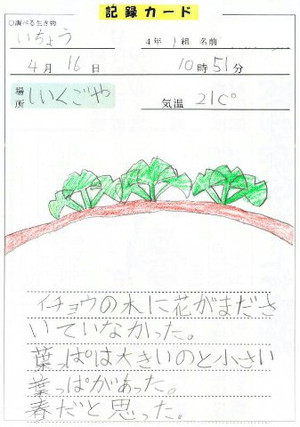 記録カード
○調べる生き物
いちょう
4年 1組 名前
4月 16日
10時51分
場所 しいくごや
気温 21C°
イチョウの木に花がまださ
いていなかった。
葉っぱは大きいのと小さい
葉っぱがあった。
春だと思った。